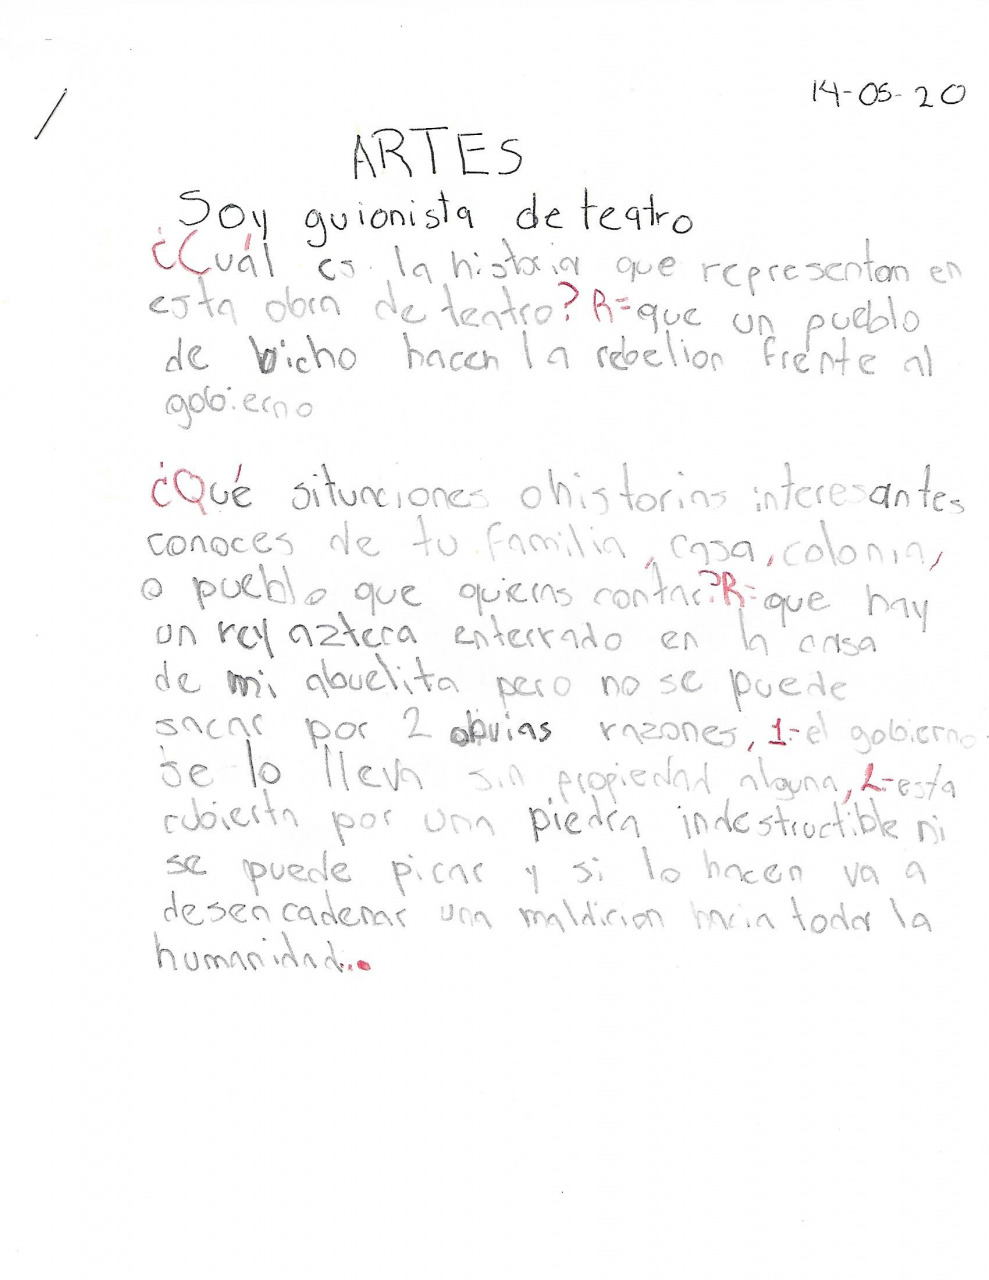 14-05-20
ARTES
Soy guionista de teatro
¿Cuál es la historia que representan en
esta obra de teatro? R= que un pueblo
de bicho hacen la rebelion frente al
gobierno
¿Qué situaciones o historias interesantes
conoces de tu familia, casa, colonia,
o pueblo que quieras contar? R= que hay
un rey azteca enterrado en la casa
de mi abuelita pero no se puede
sacar por 2 obvias razones, 1-el gobierno
se lo lleva sin propiedad alguna, 2-esta
cubierta por una piedra indestructible ni
se puede picar y si lo hacen va a
desencadenar una maldicion hacia toda la
humanidad...